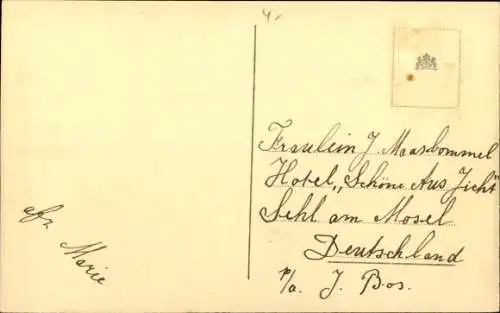 4.
Fraulein J. Maasbommel
Hotel „Schöne Aus Zicht"
Sehl am Mosel
Deutschland
p/a. J. Bos.
afz
Marie